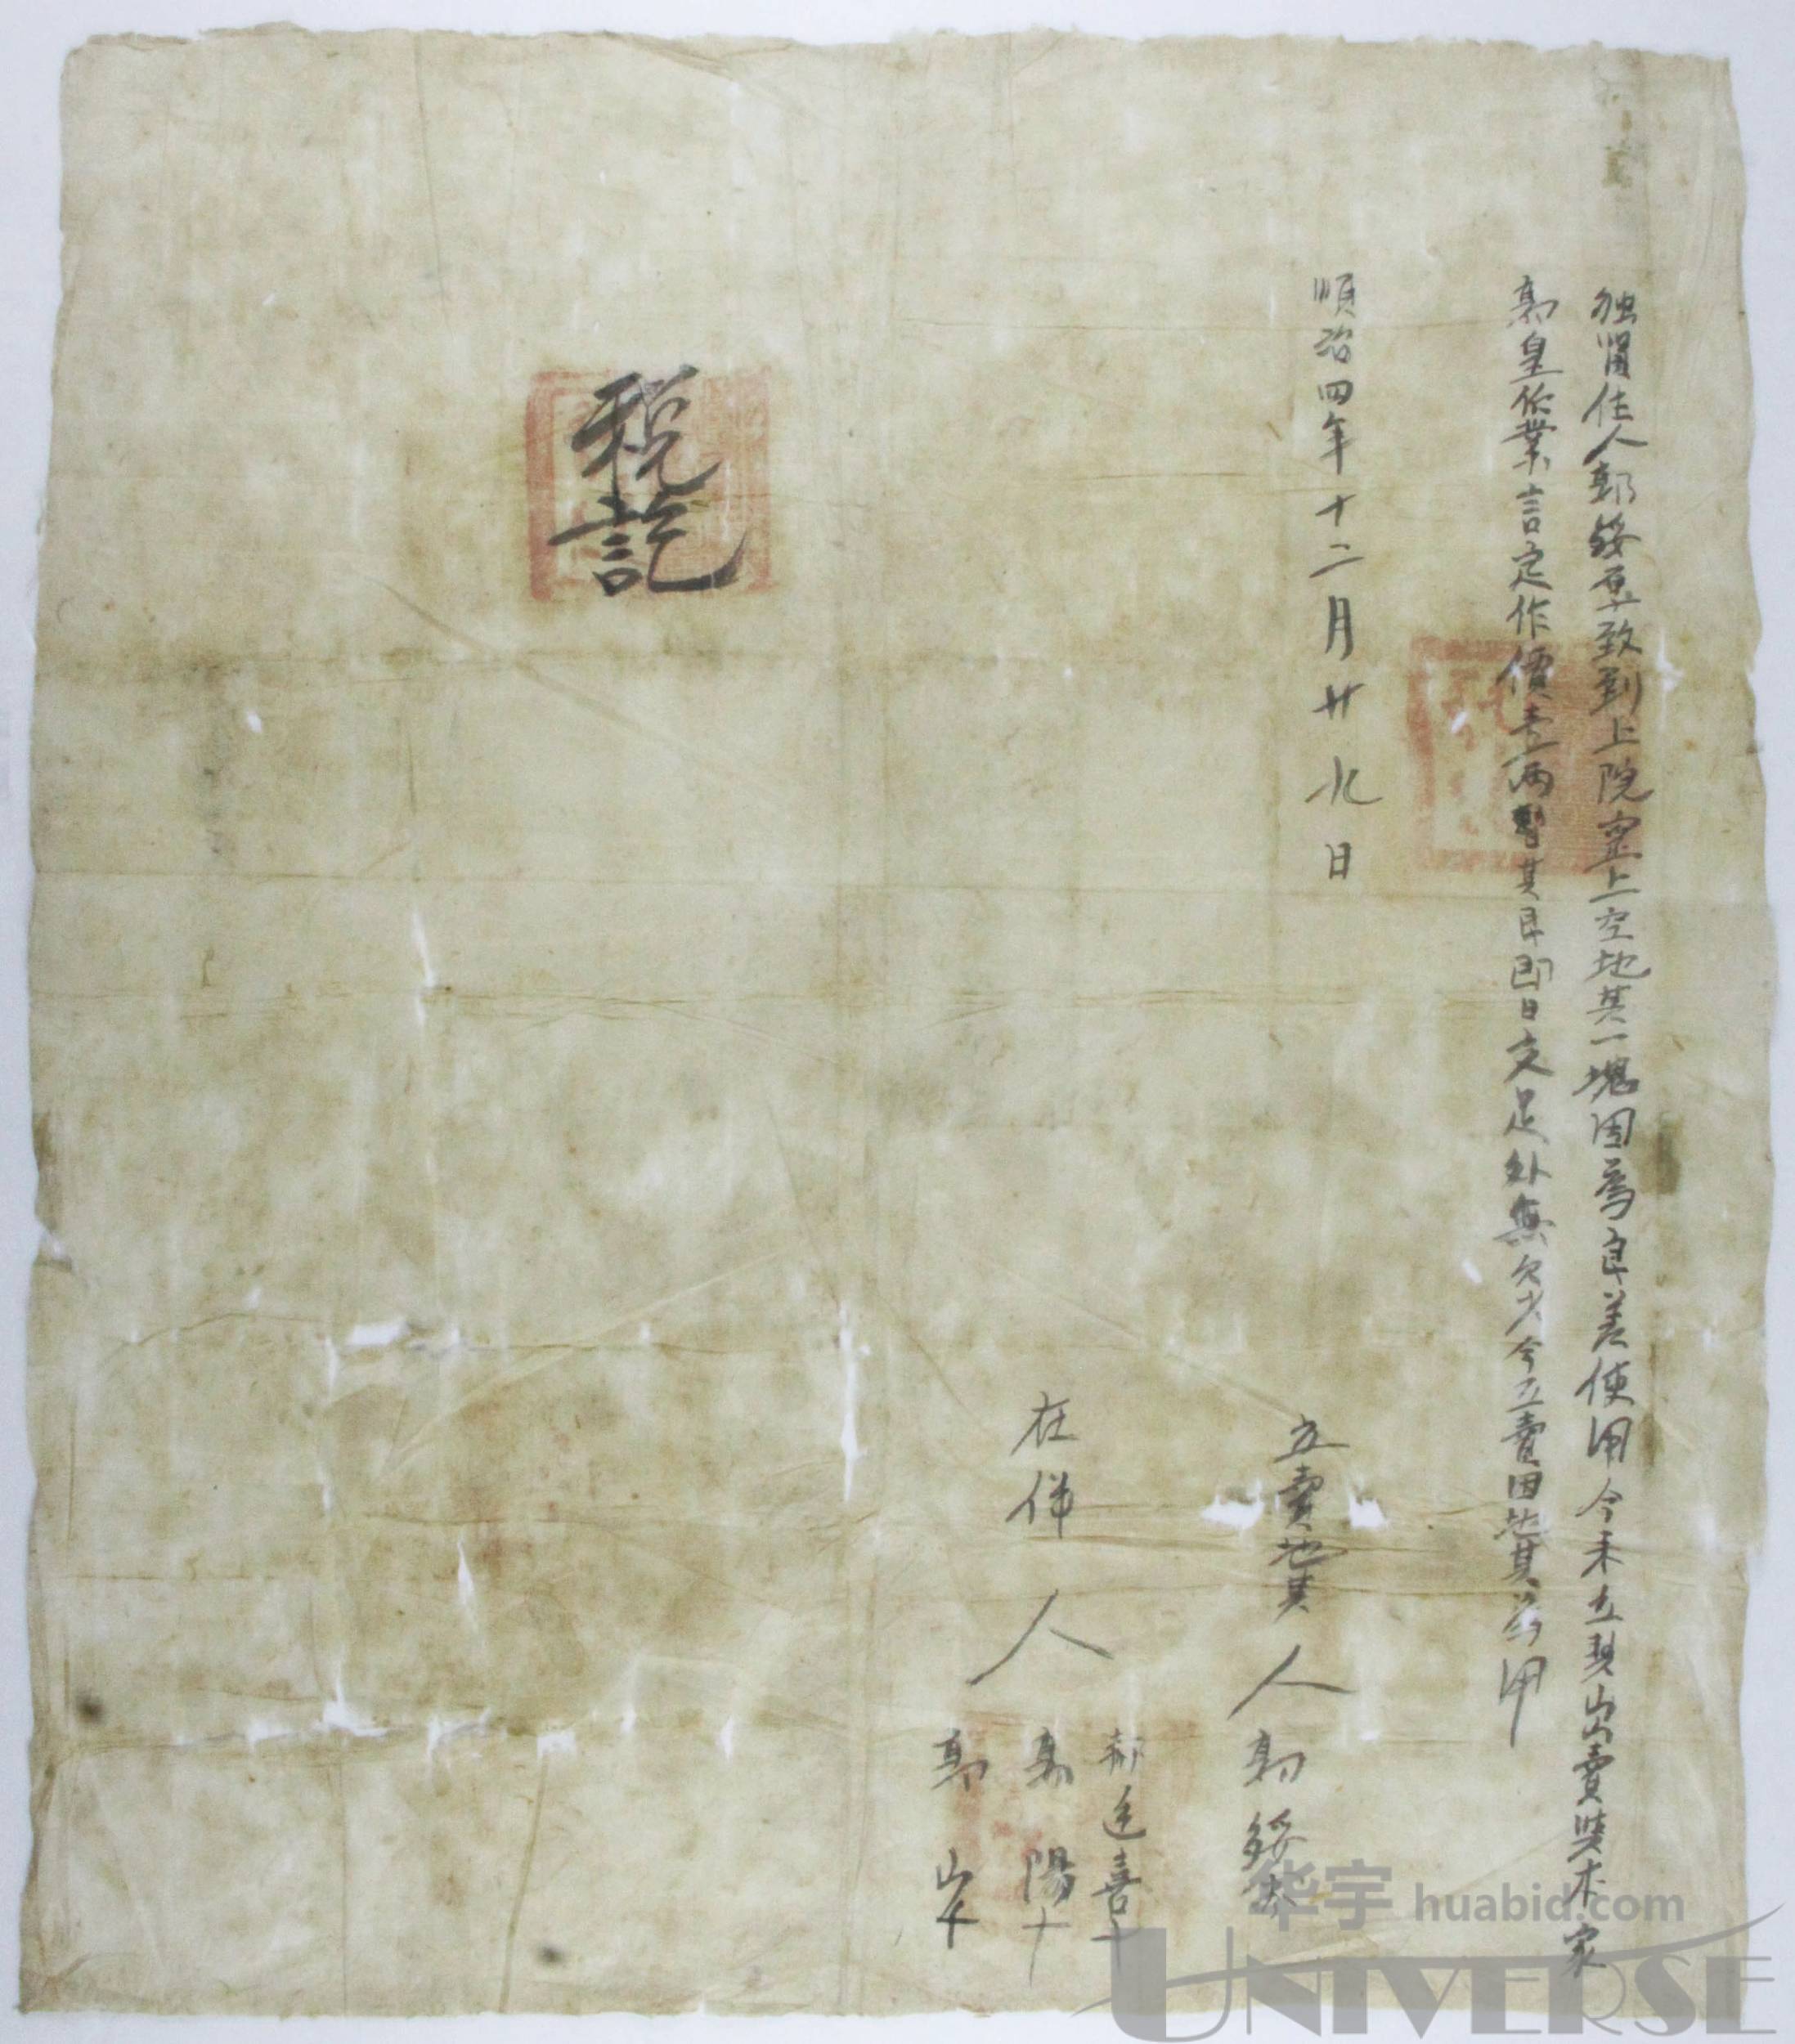 人郭綏原致到上院窑上空地其一塊因為良差使用今未立契出賣與本家
郭皇作業言定作價壹兩其良即日交足外無欠少今立賣田地其為用
順治四年十二月廿九日
立賣地其人郭綏
在併人
郝廷喜十
郭陽十
郭山十
税訖
华宇 huabid.com
UNIVERSE